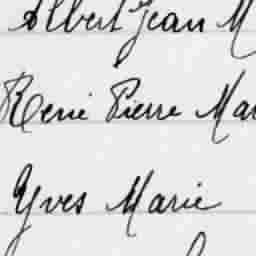 Albert Jean M
René Pierre Mar
Yves Marie